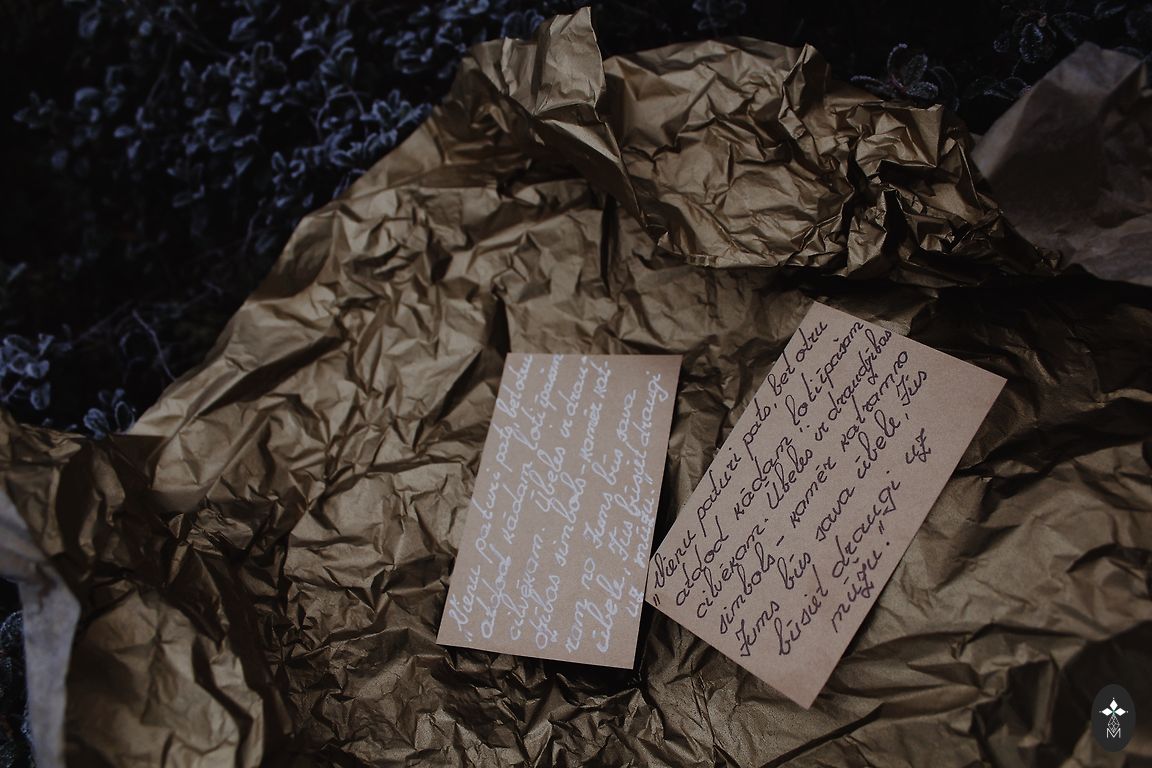 „Vienu paturi pats, bet otru
atdod kādam ļoti īpašam
cilvēkam. Ūbeles ir draudzības
simbols - kamēr katram no
Jums būs sava ūbele, Jūs
būsiet draugi uz
mūžu."
„Vienu paturi pats, bet otru
atdod kādam ļoti īpašam
cilvēkam. Ūbeles ir draudzības
simbols - kamēr kat-
ram no Jums būs sava
ūbele, Jūs būsiet draugi
uz mūžu."
M